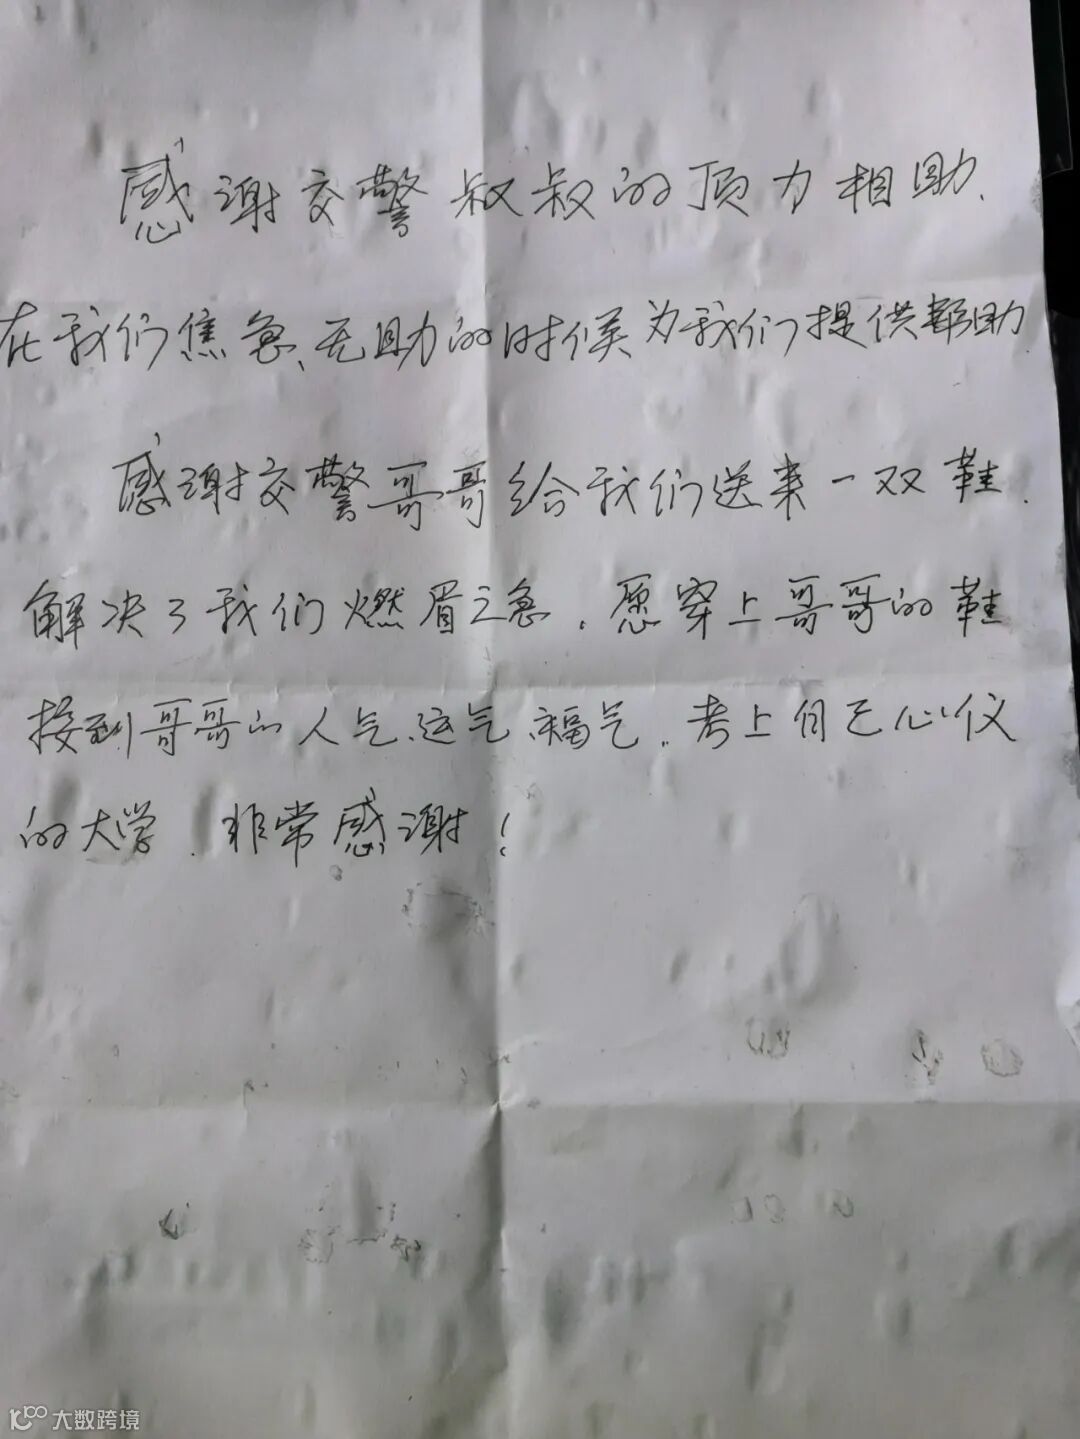 感谢交警叔叔的顶力相助.
在我们焦急、无助的时候为我们提供帮助
感谢交警哥哥给我们送来一双鞋.
解决了我们燃眉之急.愿穿上哥哥的鞋
接到哥哥的人气、运气、福气.考上自己心仪
的大学.非常感谢!
大数跨境